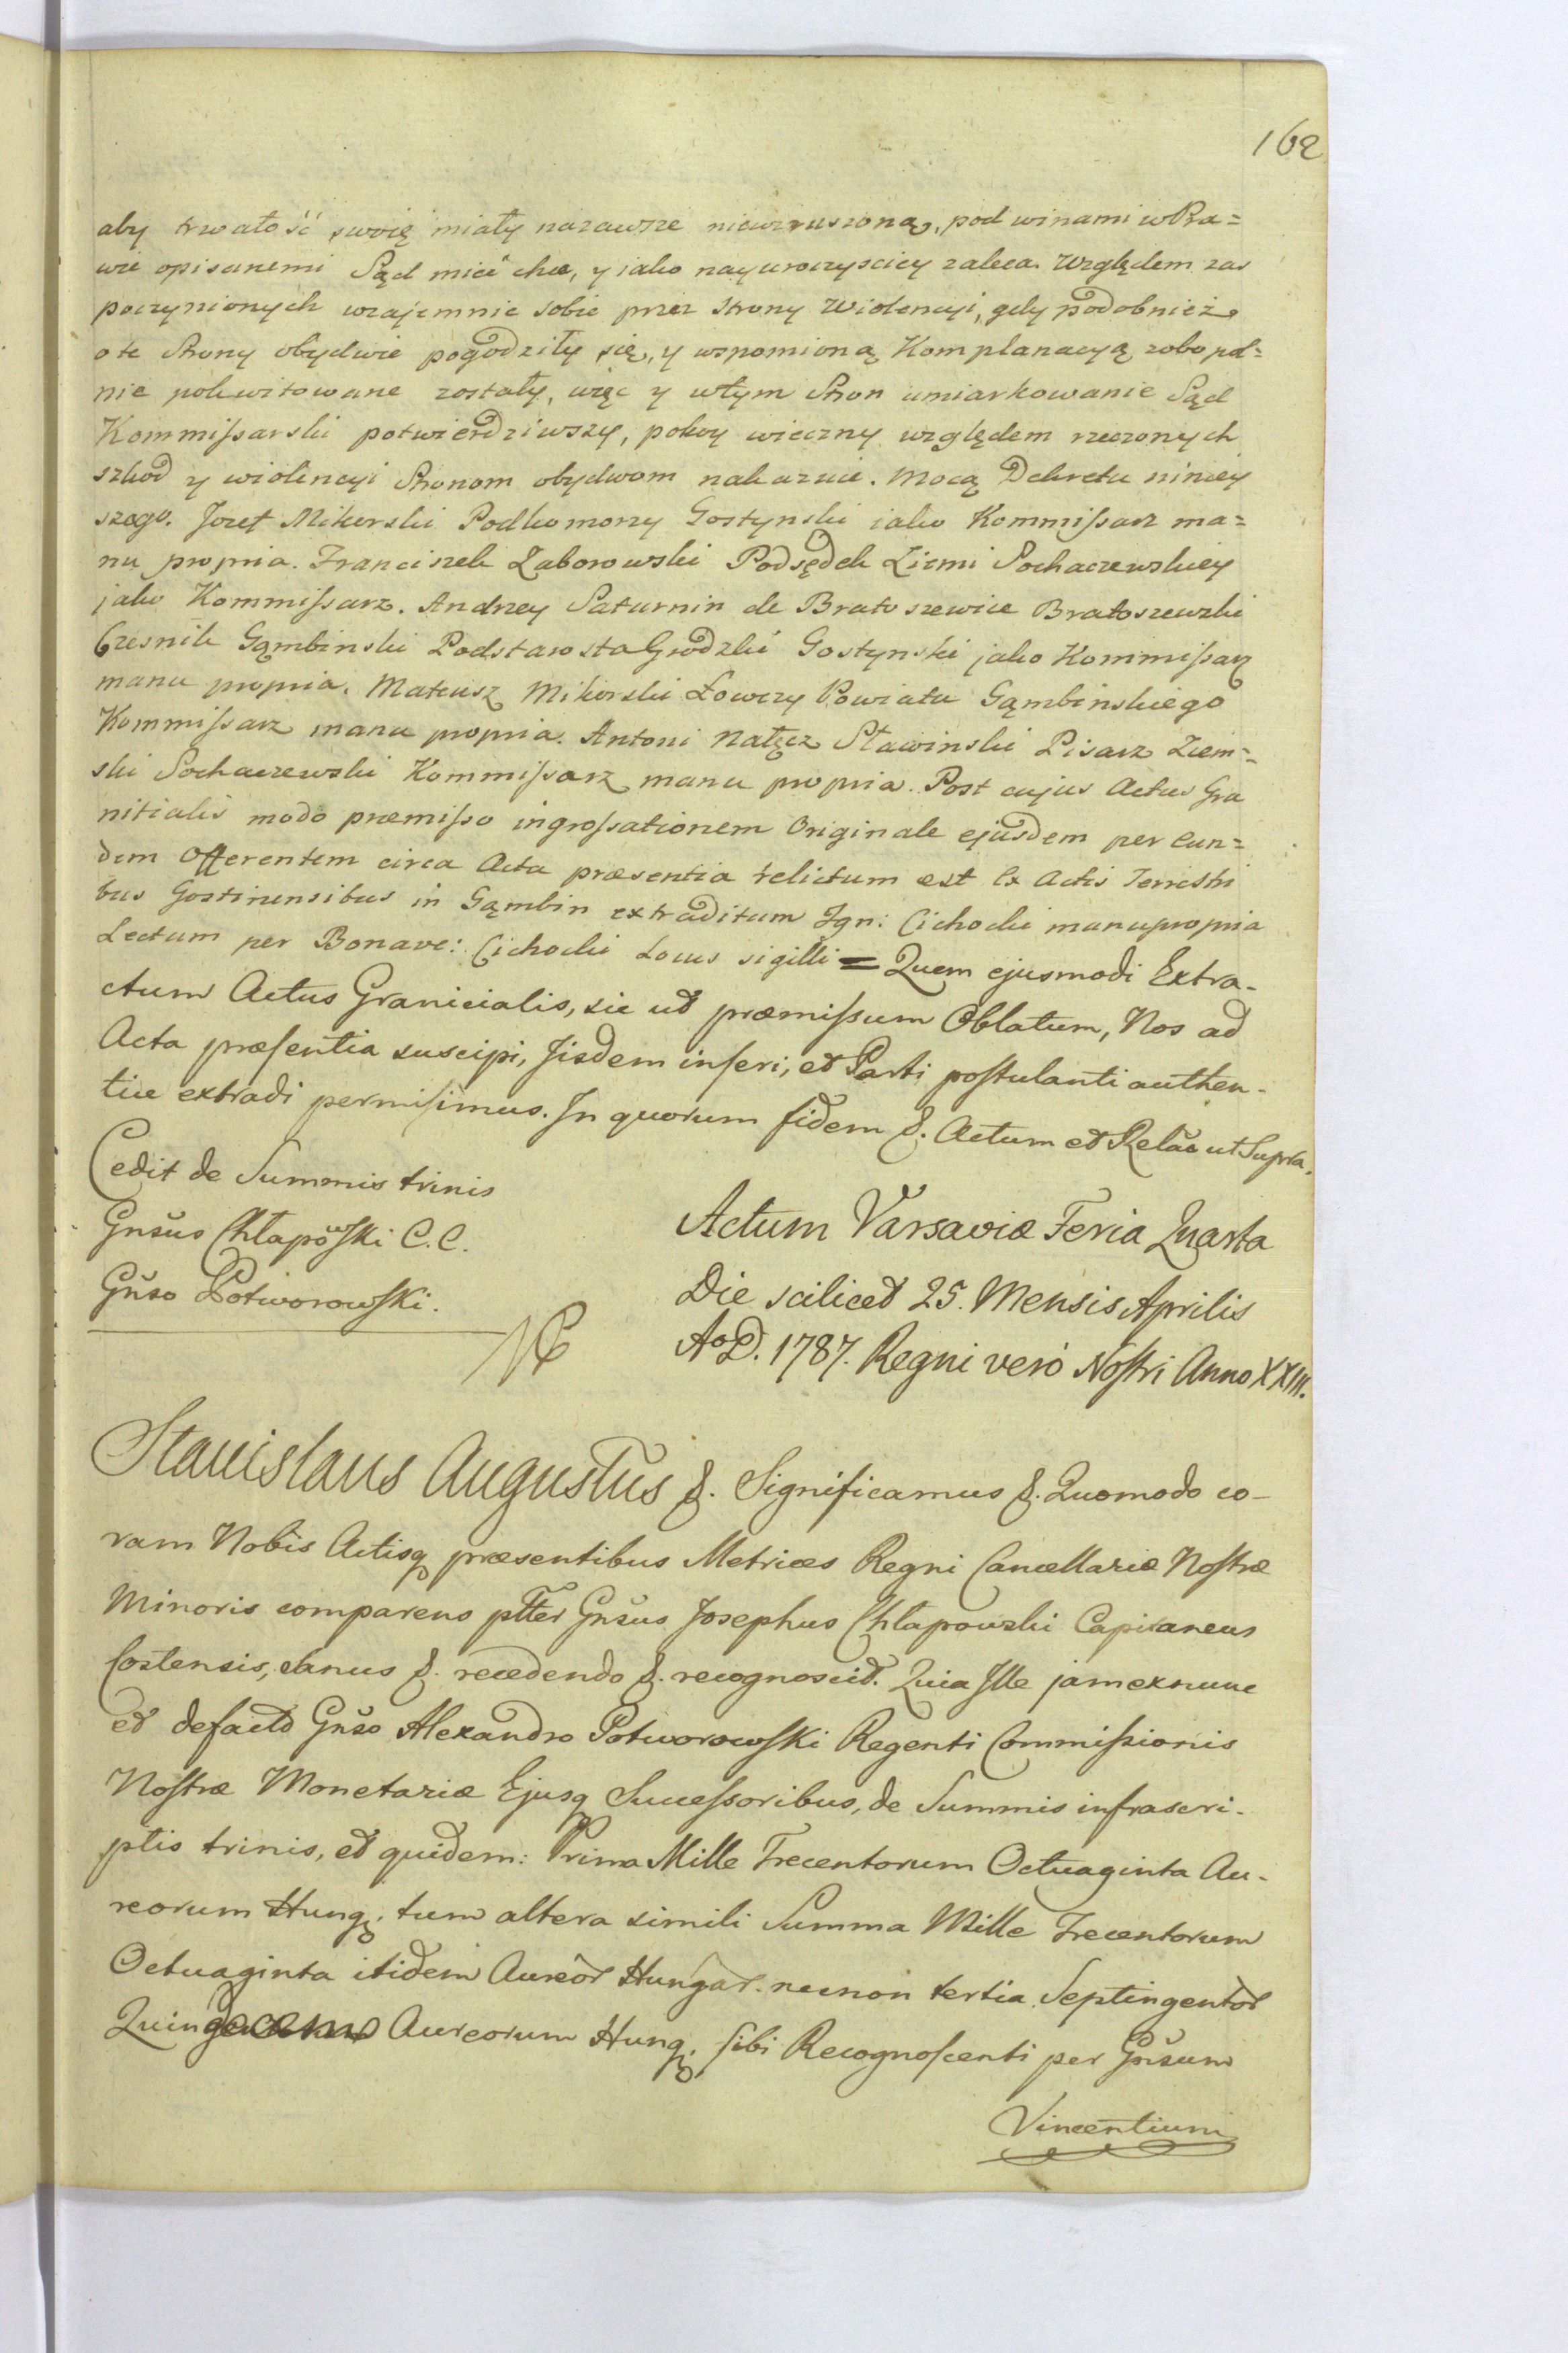 162
aby trwałość swoię miały nazawsze niewzruszoną, pod winami w Pra=
wie opisanemi Sąd mieć chce, y iako nayuroczyściey zaleca. Względem zas
poczynionych wzajemnie sobie przez Strony Wiolencyi, gdy podobnież
o te Strony obydwie pogodziły się, y wspomioną Komplanacyą zobopol=
nie pokwitowane zostały, więc y w tym Stron umiarkowanie Sąd
Kommißarski potwierdziwszy, pokoy wieczny względem rzeczonych
szkod y wiolencyi Stronom obydwom nakazuie. Mocą Dekretu niniey
szego. Jozef Mikorski Podkomorzy Gostynski iako Kommißarz ma=
nu propria. Franciszek Zaborowski Podsędek Ziemi Sochaczewskiey
jako Kommißarz. Andrzey Saturnin de Bratoszewice Bratoszewski
Czesnik Gąmbinski Podstarosta Grodzki Gostynski jako Kommißarz
manu propria. Mateusz Mikorski Łowczy Powiatu Gąmbinskiego
Kommißarz manu propria. Antoni Nałęcz Sławinski Pisarz Ziem=
ski Sochaczewski Kommißarz manu propria. Post cujus Actus Gra
nitialis modo præmißo ingroßationem Originale ejusdem per eun=
dem Offerentem circa Acta præsentia relictum est Ex Actis Terrestri
bus Gostinensibus in Gąmbin extraditum Ign: Cichocki manu propria
Lectum per Bonave: Cichocki Locus sigilli = Quem ejusmodi Extra-
ctum Actus Granicialis, sic ut præmißum Oblatum, Nos ad
Acta præsentia suscipi, Iisdem inseri, et Parti postulanti authen-
tice extradi permisimus. In quorum fidem &. Actum et Relão ut Supra.
Cedit de Summis trinis
Gnšus Chłapow̃ski C.C.
Gnšo Potworowski.
Actum Varsaviæ Feria Quarta
Die scilicet 25. Mensis Aprilis
AoD. 1787. Regni verò Nostri Anno XXIII.
Stanislaus Augustus &. Significamus &. Quomodo co-
ram Nobis Actisq præsentibus Metrices Regni Cancellariæ Nostræ
Minoris comparens ptter Gnšus Josephus Chłapowski Capitaneus
Costensis, sanus &. recedendo &. recognoscit. Quia Ille jam exnunc
et defacto Gnšo Alexandro Potworowski Regenti Commißionis
Nostræ Monetariæ Ejusq Succeßoribus, de Summis infrascri-
ptis trinis, et quidem: Prima Mille Trecentorum Octuaginta Au-
reorum Hung. tum altera simili Summa Mille Trecentorum
Octuaginta itidem Aureor Hungar. necnon tertia Septingentor
Quindecem Aureorum Hung. sibi Recognoscenti per Gnšum
Vincentium